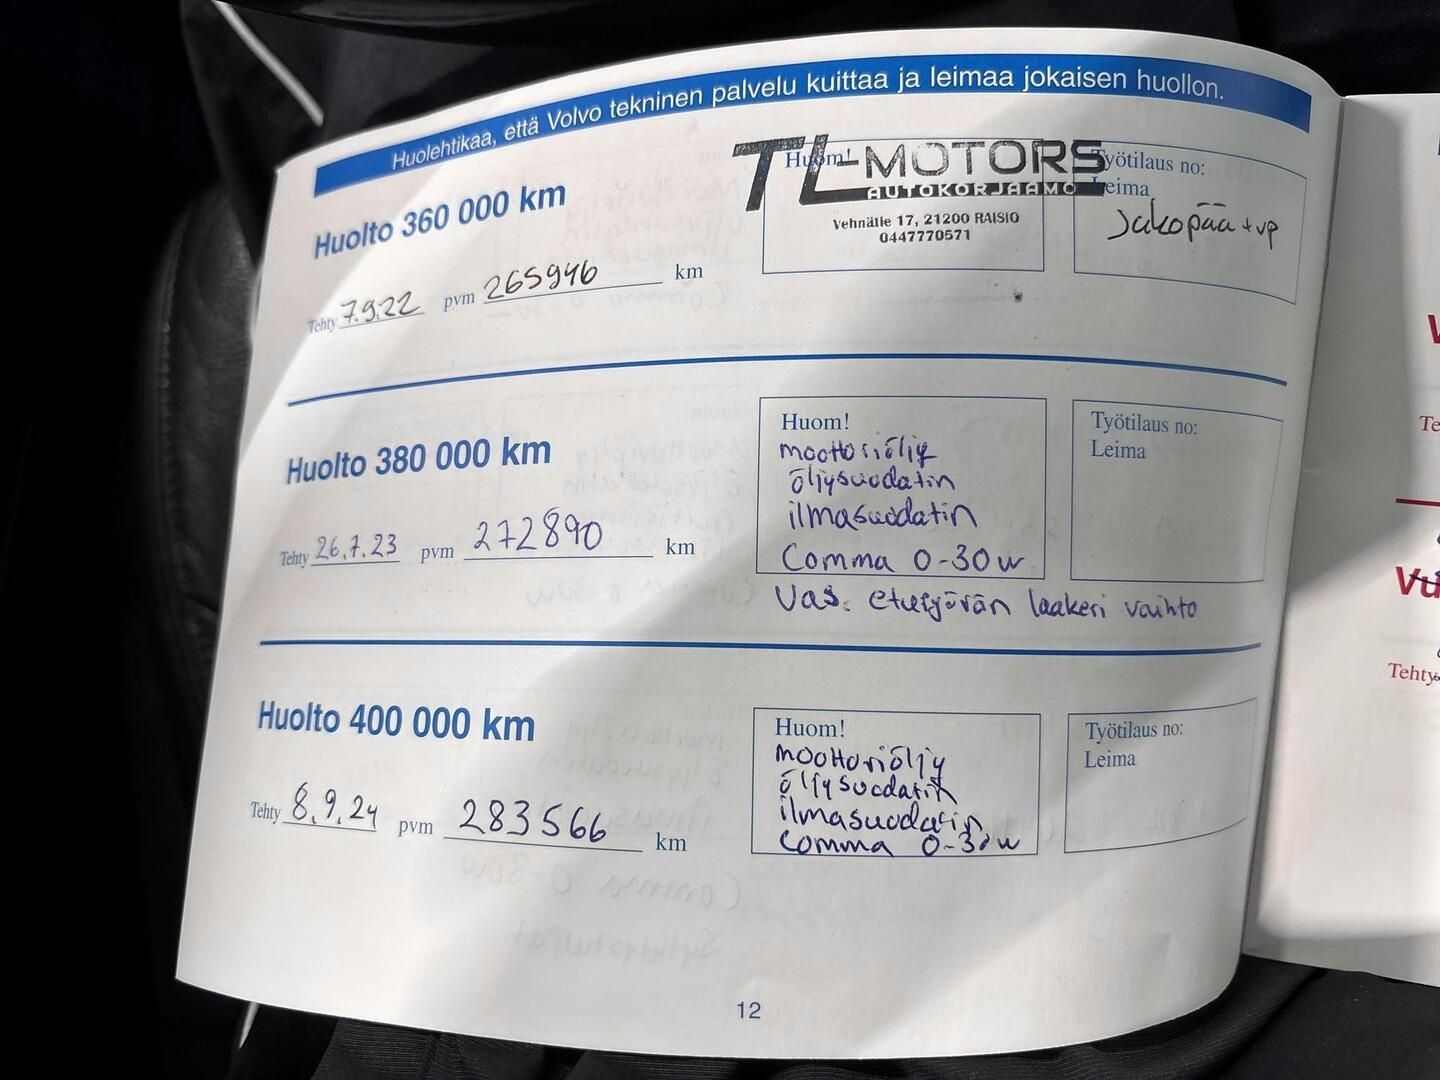 Huolehtikaa, että Volvo tekninen palvelu kuittaa ja leimaa jokaisen huollon.
Huolto 360 000 km
Tehty 7.9.22 pvm 265946 km
Huom!
TL-MOTORS
AUTOKORJAAMO
Vehnätie 17, 21200 RAISIO
0447770571
Työtilaus no:
Leima
Jakopää + vp
Huolto 380 000 km
Tehty 26.7.23 pvm 272890 km
Huom!
moottoriöljy
öljysuodatin
ilmasuodatin
Comma 0-30w
Vas. etupyörän laakeri vaihto
Työtilaus no:
Leima
Huolto 400 000 km
Tehty 8.9.24 pvm 283566 km
Huom!
moottoriöljy
öljysuodatin
ilmasuodatin
Comma 0-30w
Työtilaus no:
Leima
12
Tehty